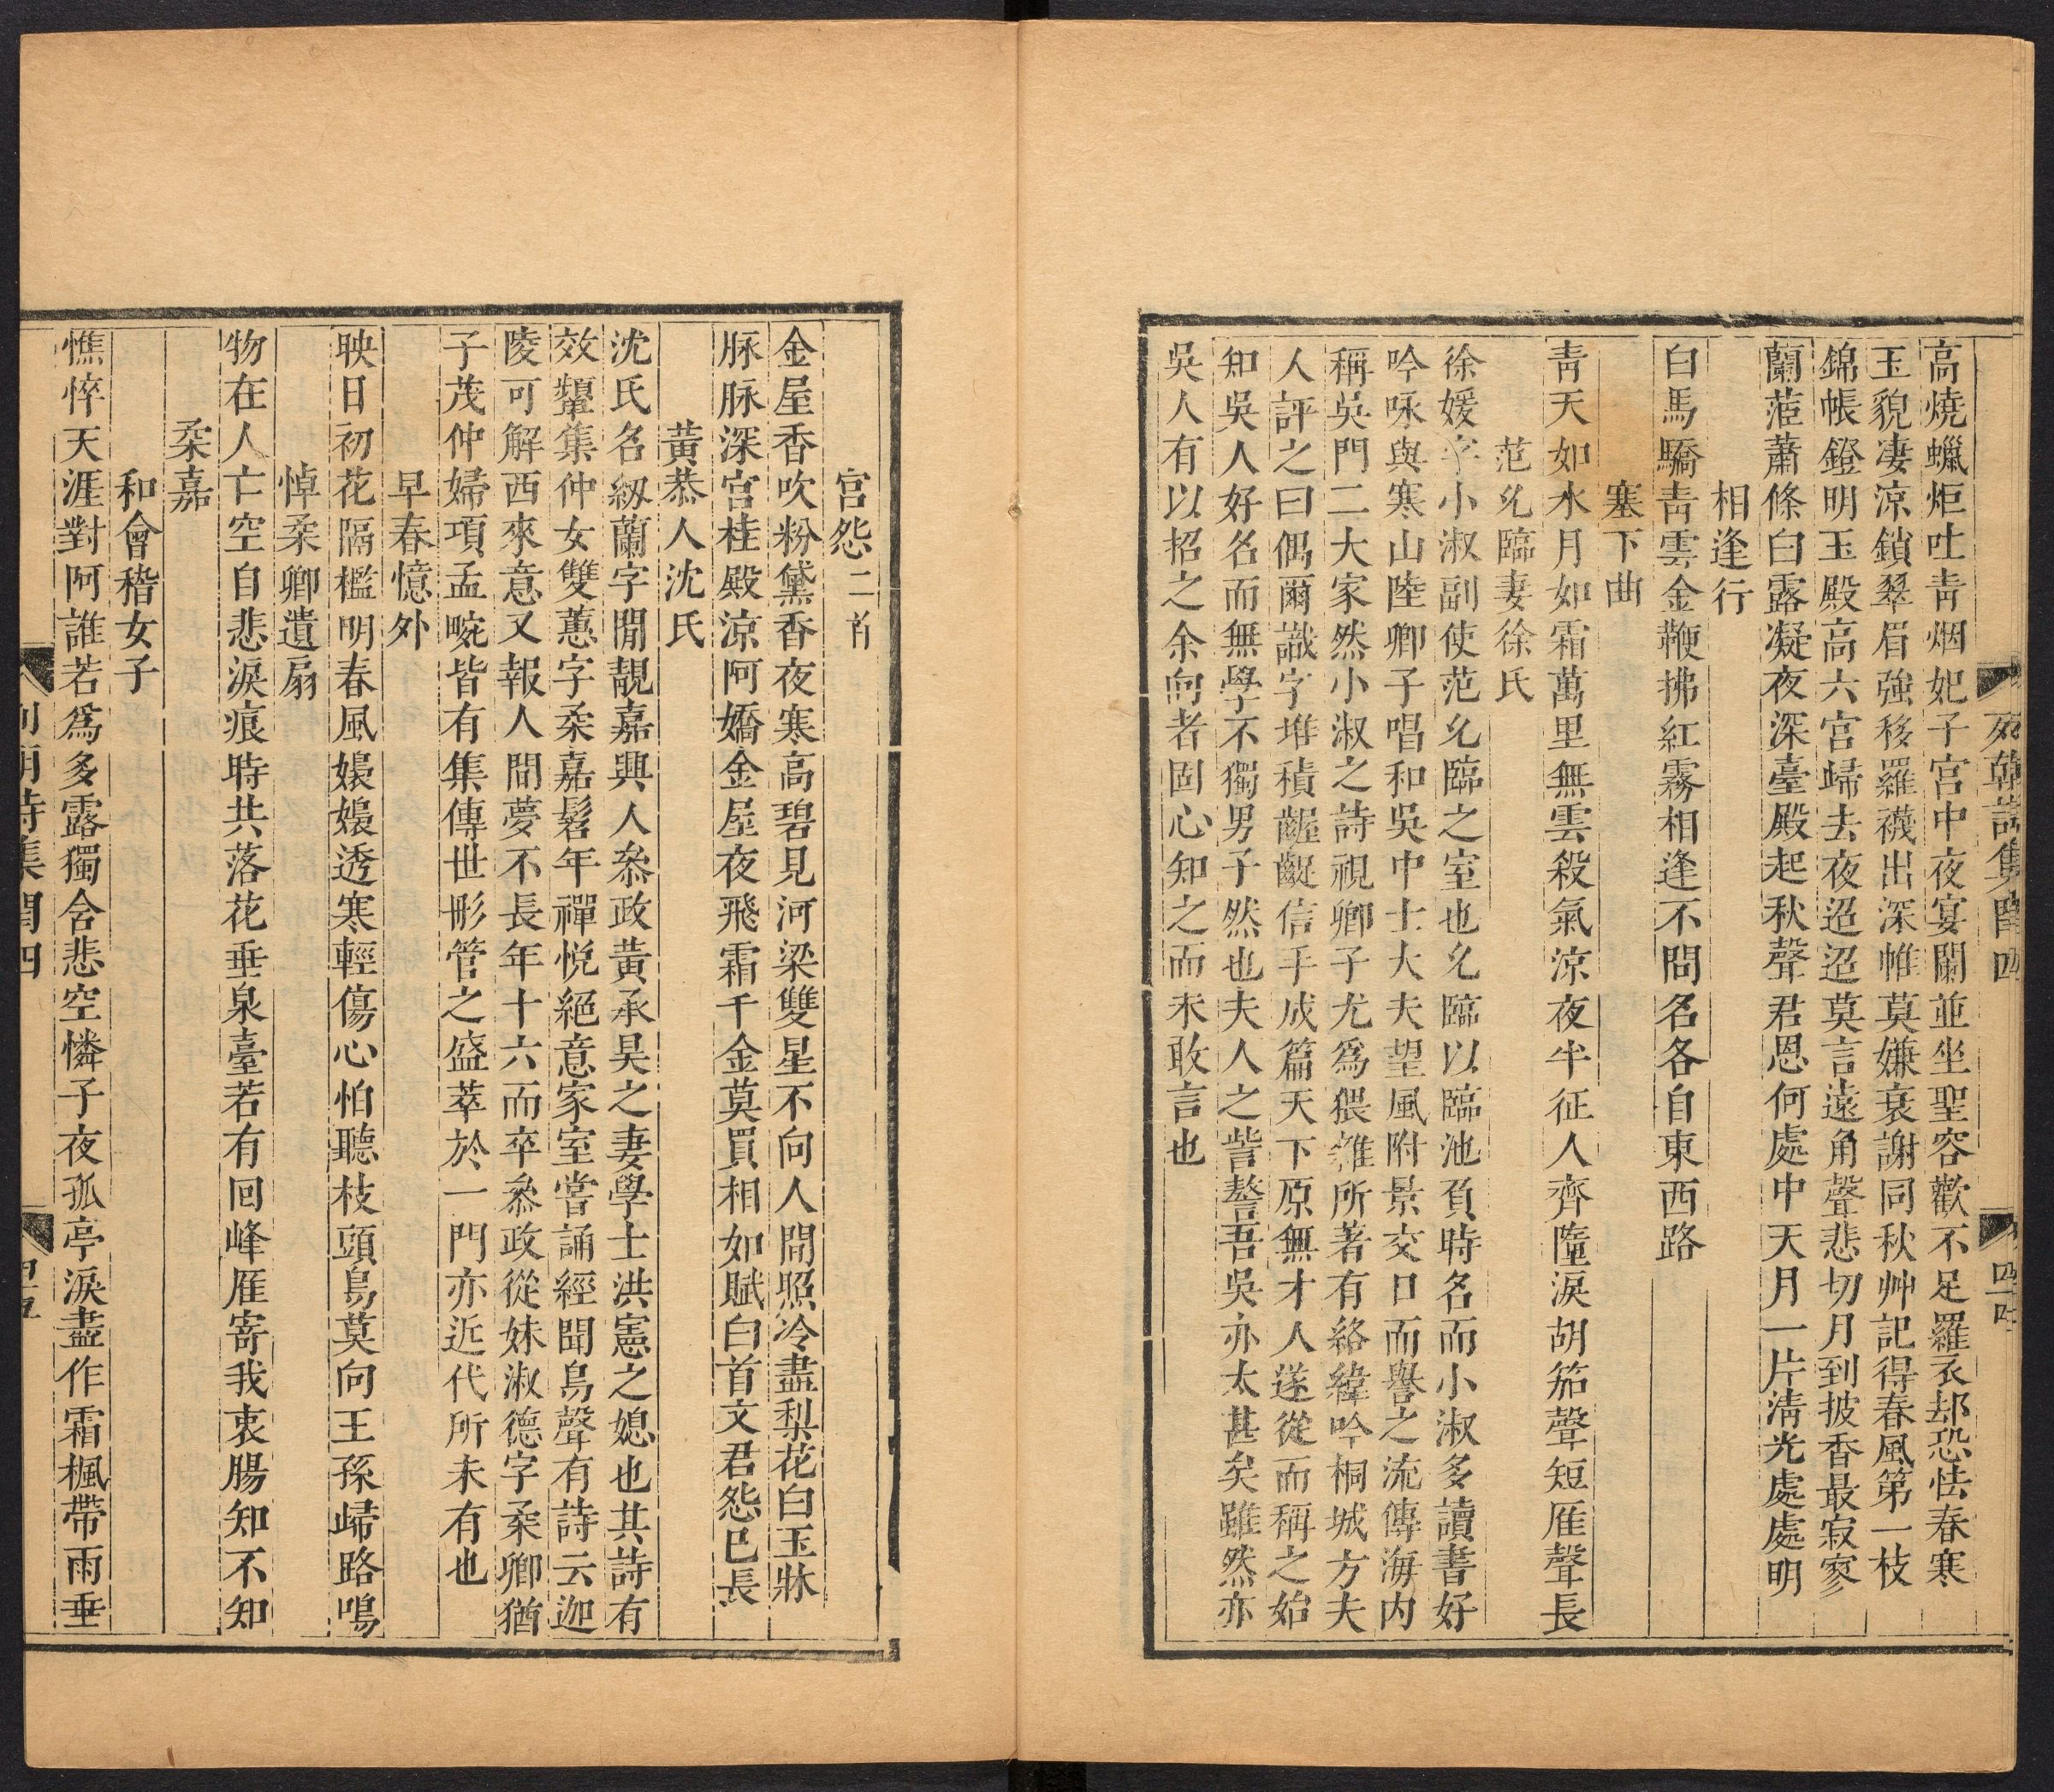 高燒蠟炬吐靑烟妃子宮中夜宴闌並坐聖容歡不足羅衣却恐怯春寒
玉貌凄涼鎖翠眉強移羅襪出深帷莫嫌衰謝同秋艸記得春風第一枝
錦帳鐙明玉殿高六宮歸去夜迢迢莫言遠角聲悲切月到披香最寂寥
蘭茝蕭條白露凝夜深臺殿起秋聲君恩何處中天月一片淸光處處明
相逢行
白馬驕靑雲金鞭拂紅霧相逢不問名各自東西路
塞下曲
靑天如水月如霜萬里無雲殺氣涼夜半征人齊墮淚胡笳聲短雁聲長
范允臨妻徐氏
徐媛字小淑副使范允臨之室也允臨以臨池負時名而小淑多讀書好
吟咏與寒山陸卿子唱和吳中士大夫望風附景交口而譽之流傳海內
稱吳門二大家然小淑之詩視卿子尤爲猥雜所著有絡緯吟桐城方夫
人評之曰偶爾識字堆積齷齪信手成篇天下原無才人遂從而稱之始
知吳人好名而無學不獨男子然也夫人之訾謷吾吳亦太甚矣雖然亦
吳人有以招之余向者固心知之而未敢言也
宮怨二首
金屋香吹粉黛香夜寒高碧見河梁雙星不向人間照冷盡梨花白玉牀
脉脉深宮桂殿涼阿嬌金屋夜飛霜千金莫買相如賦白首文君怨已長
黃恭人沈氏
沈氏名紉蘭字閒靚嘉興人叅政黃承昊之妻學士洪憲之媳也其詩有
效顰集仲女雙蕙字柔嘉髫年禪悅絕意家室嘗誦經聞鳥聲有詩云迦
陵可解西來意又報人間夢不長年十六而卒叅政從妹淑德字柔卿猶
子茂仲婦項孟畹皆有集傳世彤管之盛萃於一門亦近代所未有也
早春憶外
映日初花隔檻明春風嬝嬝透寒輕傷心怕聽枝頭鳥莫向王孫歸路鳴
悼柔卿遺扇
物在人亡空自悲淚痕時共落花垂泉臺若有回峰雁寄我衷腸知不知
柔嘉
和會稽女子
憔悴天涯對阿誰若爲多露獨含悲空憐子夜孤亭淚盡作霜楓帶雨垂